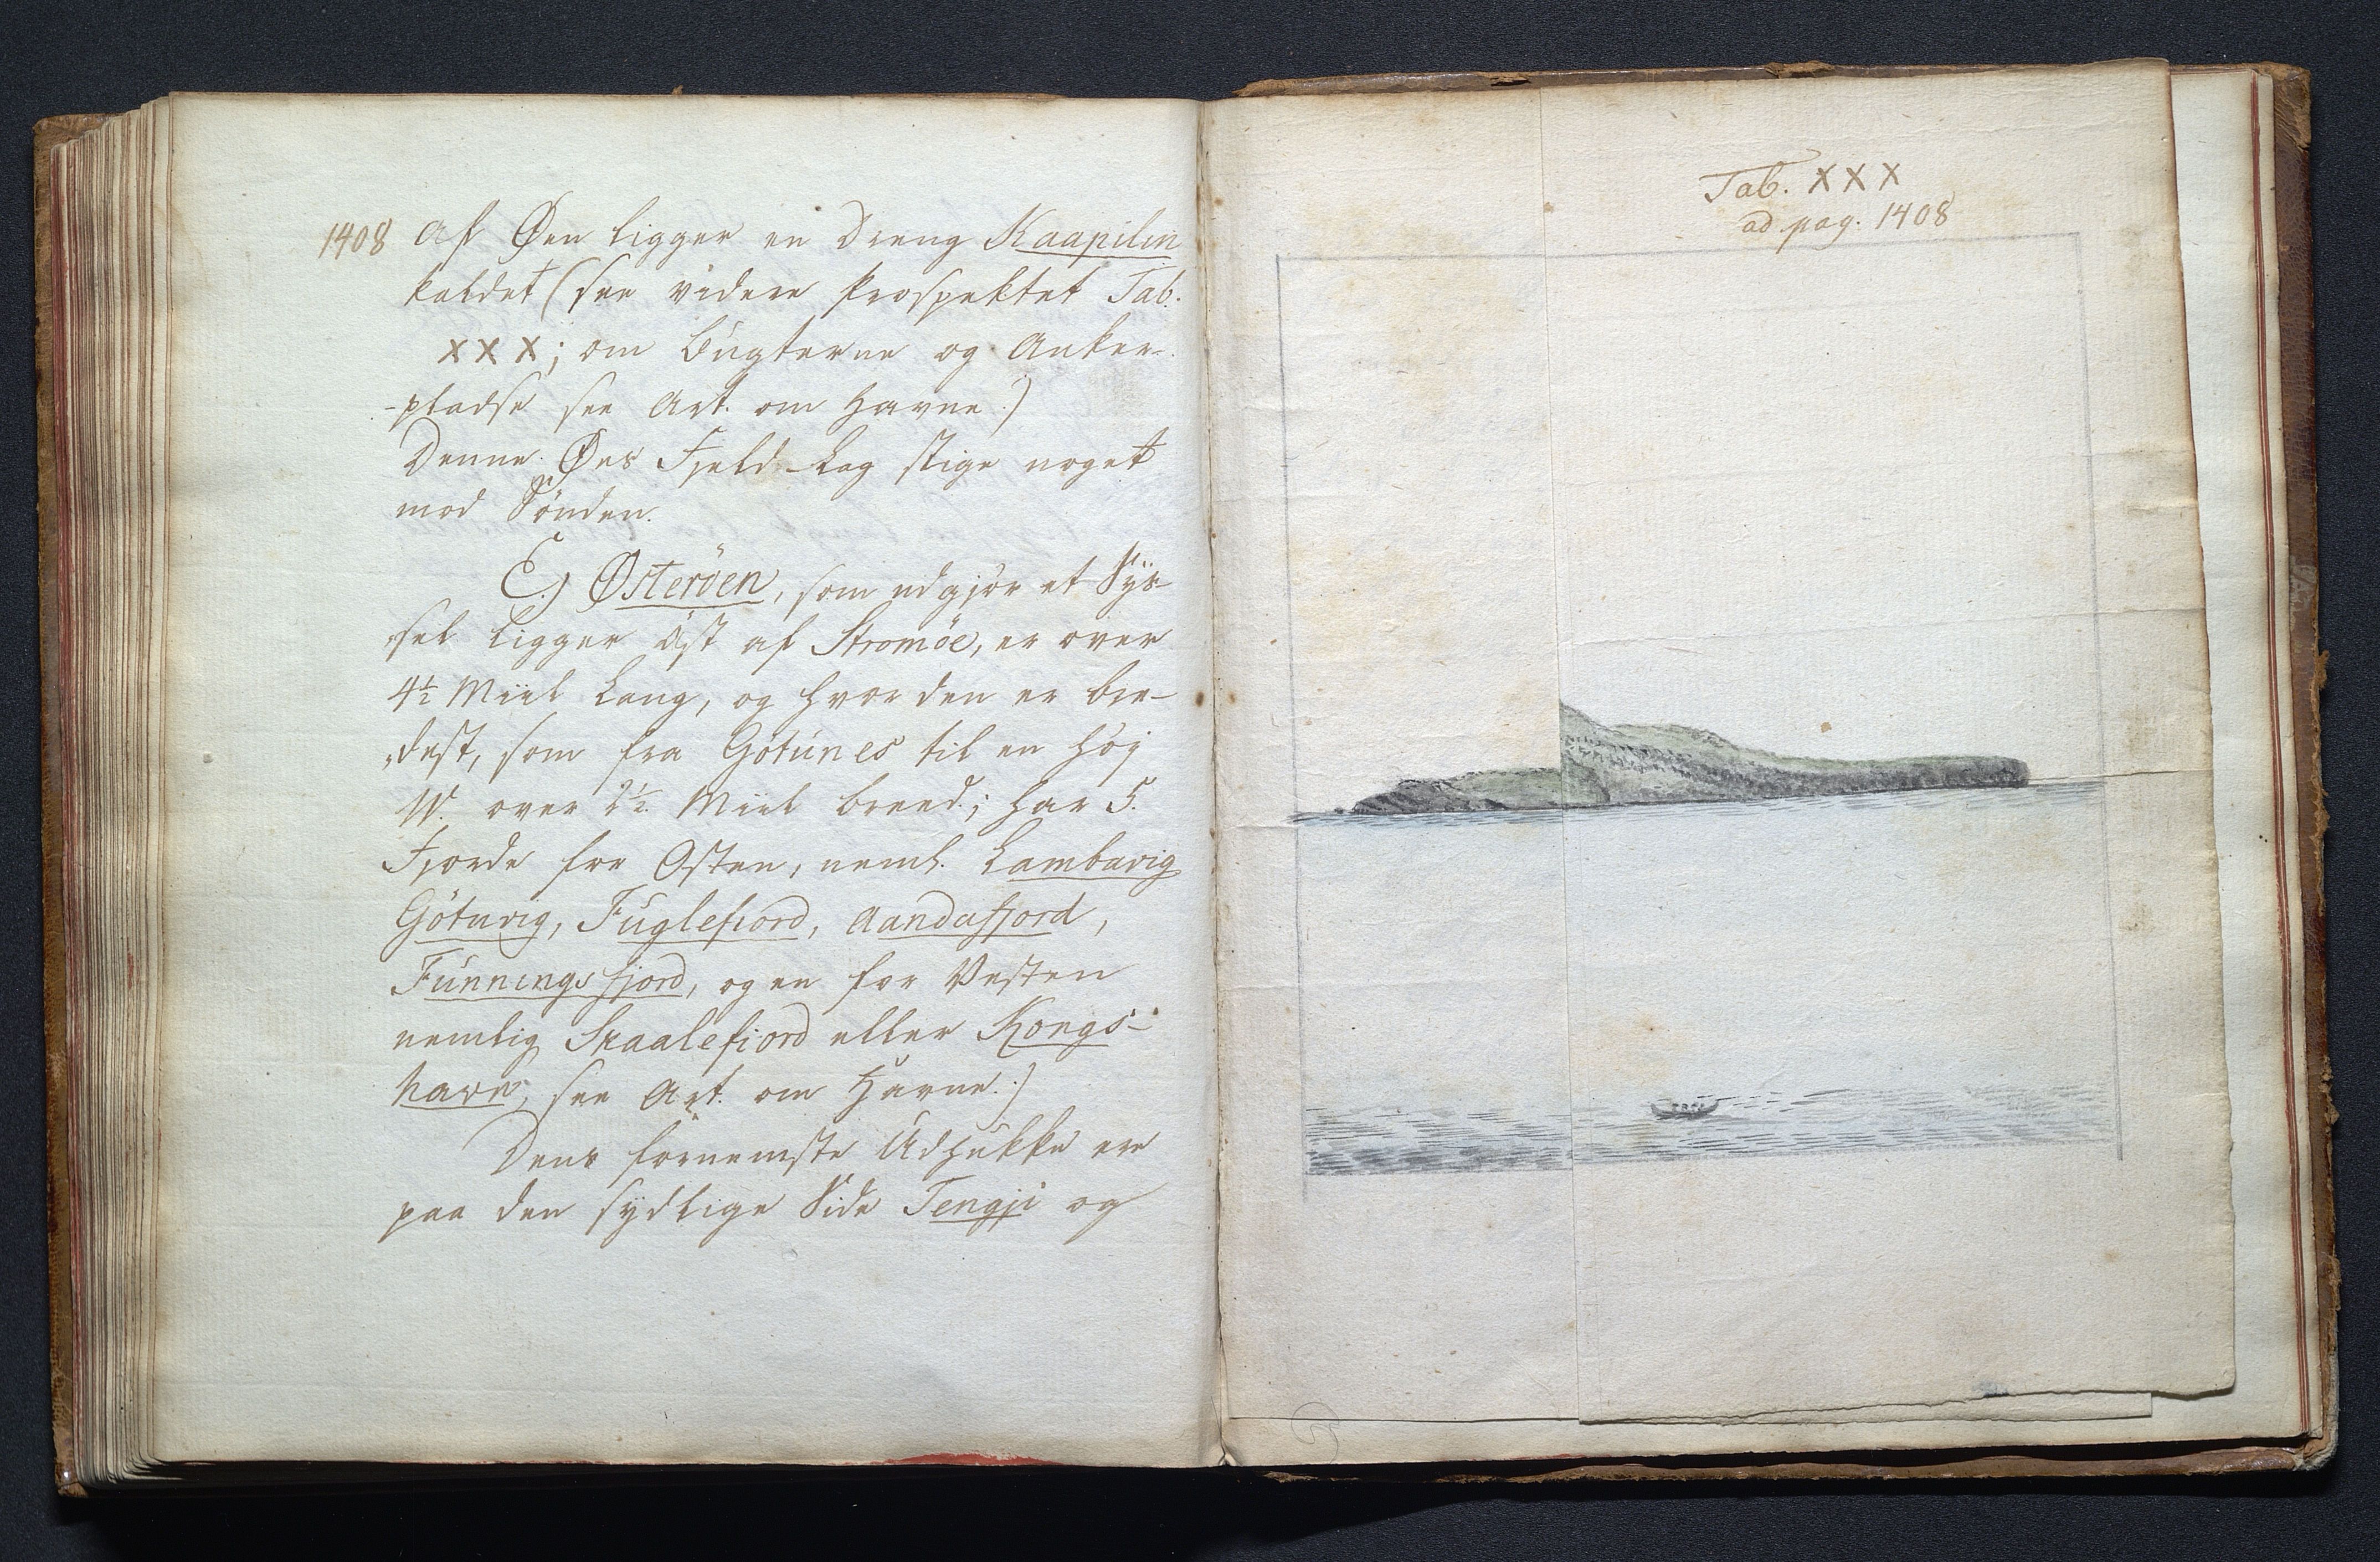 1408 Af Øen ligger en Dreng Kaapilin
kaldet (see videre Prospektet Tab.
XXX; om Bugterne og Anker-
-pladse see Art. om Havne.)
Denne Øes Fjeld-Lag stige noget
mod Sönden.
E.) Østeröen, som udgjör et Sys-
sel ligger Öst af Stromöe, er over
4½ Miil Lang, og hvor den er bre-
dest, som fra Götunes til en Höj
W. over 2½ Miil breed; har 5.
Fjorde for Osten, neml. Lambavig
Götuvig, Fuglefiord, Aandafjord,
Funningsfjord, og en for Vesten
nemlig Skaalefiord eller Kongs-
havn, see Art. om Havne.)
Dens fornemste Udhukke ere
paa den sydlige Side Tengji og
Tab. XXX
ad pag. 1408